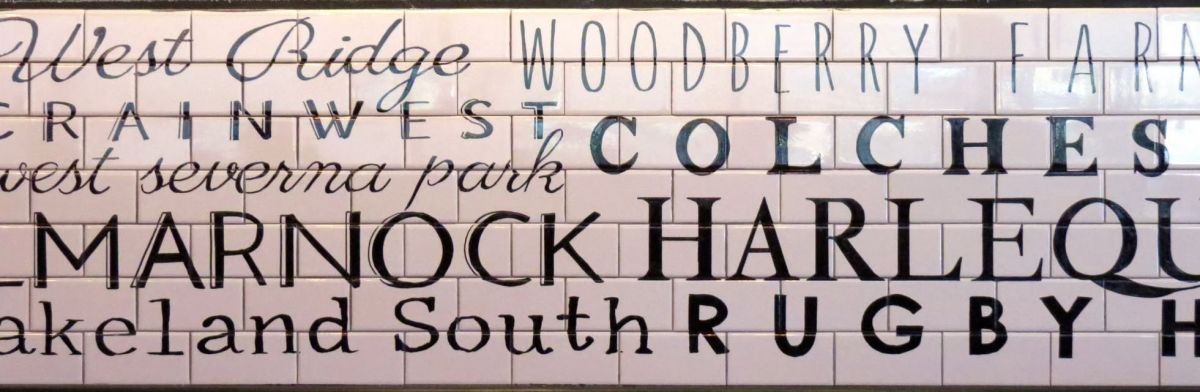 West Ridge WOODBERRY FARM
CRAINWEST
COLCHES
west severna park
LMARNOCK HARLEQU
akeland South RUGBY H